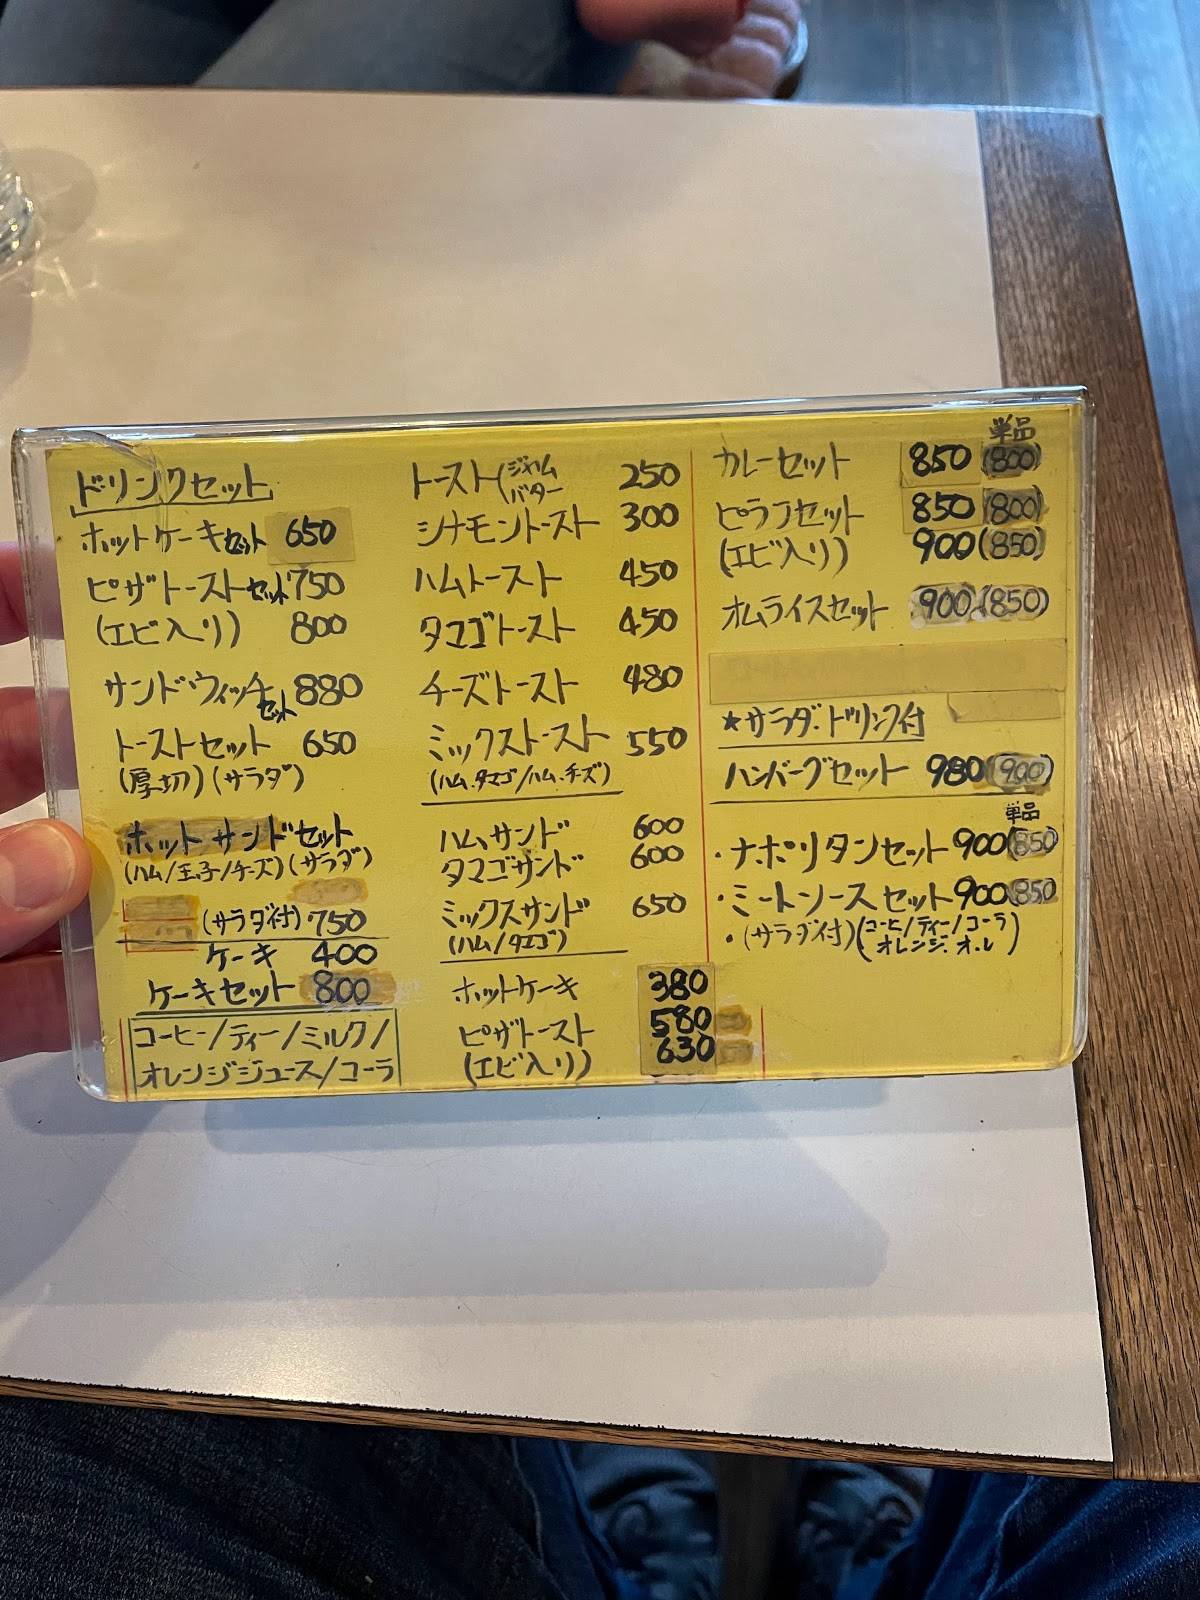 ドリンクセット
ホットケーキセット 650
ピザトーストセット 750
(エビ入り) 800
サンドウィッチセット 880
トーストセット 650
(厚切)(サラダ)
ホットサンドセット
(ハム/玉子/チーズ)(サラダ)
(サラダ付) 750
ケーキ 400
ケーキセット 800
コーヒー/ティー/ミルク/
オレンジジュース/コーラ
トースト(ジャム バター 250
シナモントースト 300
ハムトースト 450
タマゴトースト 450
チーズトースト 480
ミックストースト 550
(ハム、タマゴ/ハム、チーズ)
ハムサンド 600
タマゴサンド 600
ミックスサンド 650
(ハム/タマゴ)
ホットケーキ 380
ピザトースト 580
(エビ入り) 630
単品
カレーセット 850 (800)
ピラフセット 850 (800)
(エビ入り) 900 (850)
オムライスセット 900 (850)
★サラダ・ドリンク付
ハンバーグセット 980 (900)
単品
・ナポリタンセット 900 (850
・ミートソースセット 900 (850
・(サラダ付)(コーヒ/ティー/コーラ
オレンジ・オ・レ)